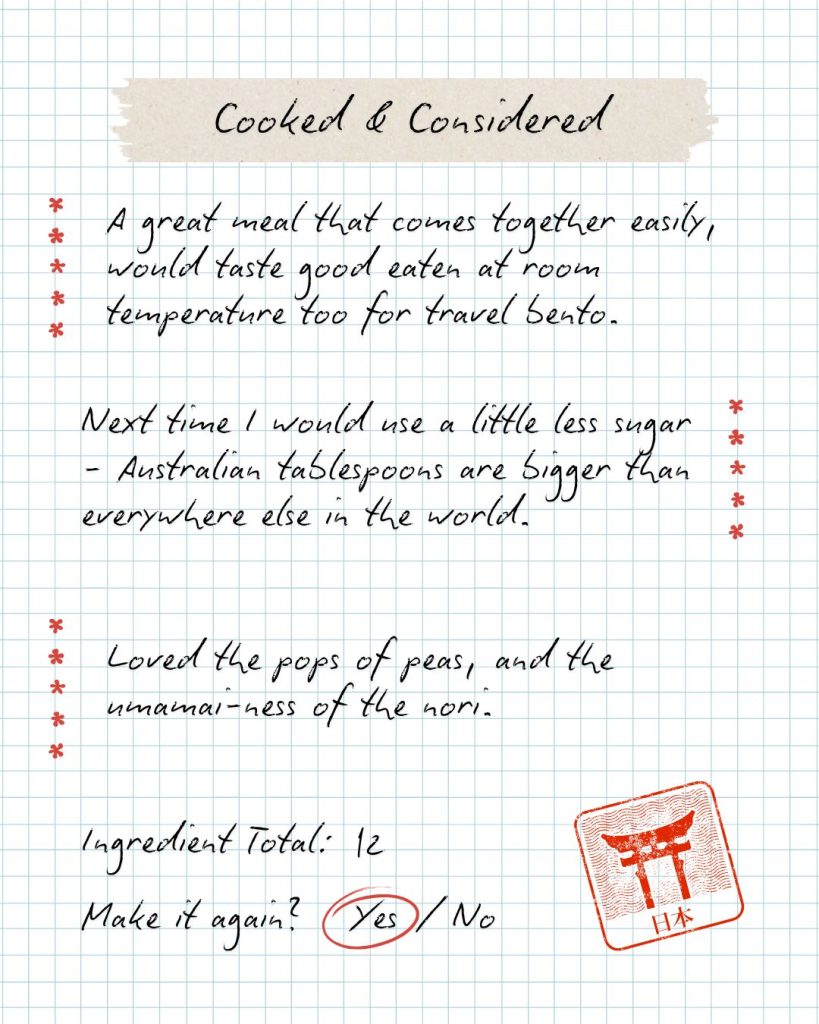 Cooked & Considered
A great meal that comes together easily,
would taste good eaten at room
temperature too for travel bento.
Next time I would use a little less sugar
- Australian tablespoons are bigger than
everywhere else in the world.
Loved the pops of peas, and the
umamai-ness of the nori.
Ingredient Total: 12
Make it again? Yes / No
日本